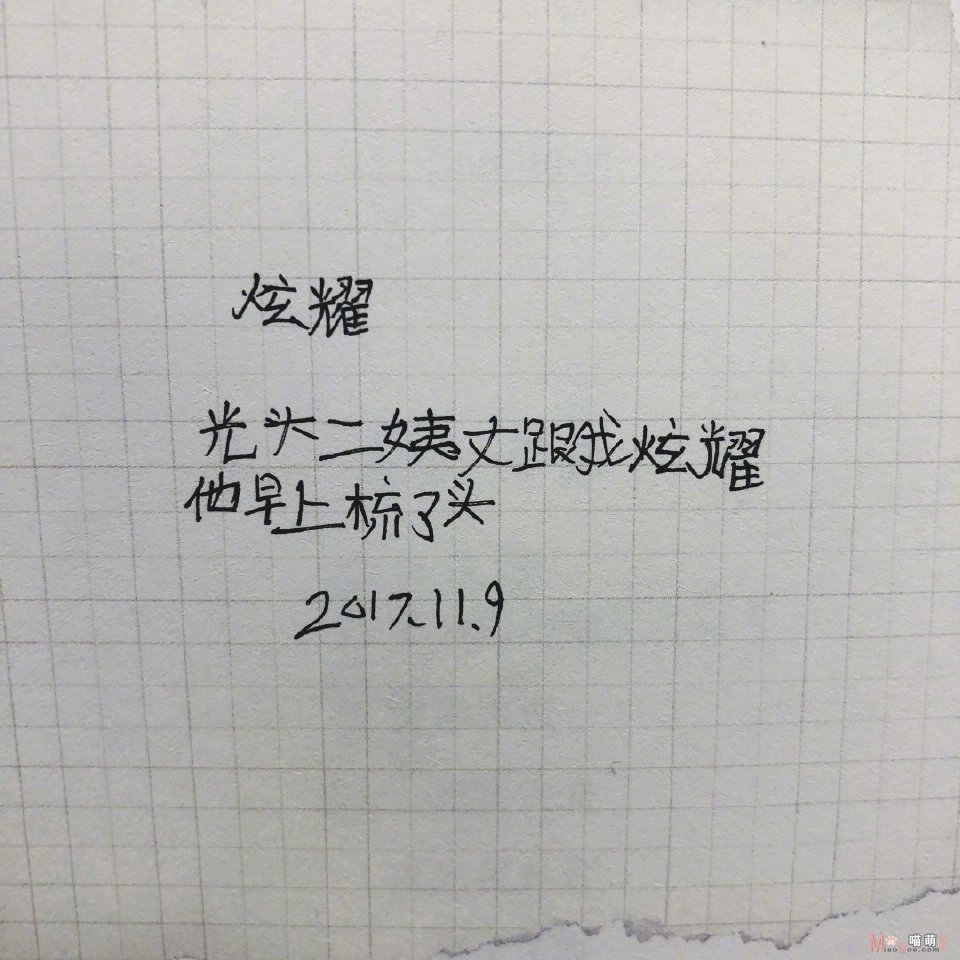 炫耀
光头二姨丈跟我炫耀
他早上梳了头
2017.11.9
喵萌